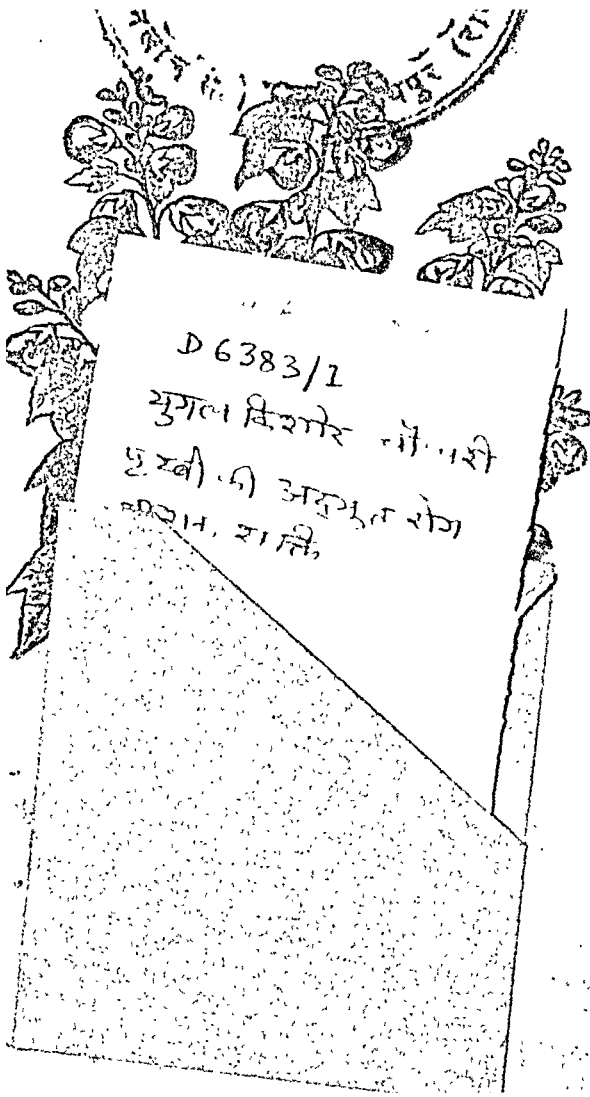 D 6383/1
युगल किशोर चौधरी
पृथ्वी की अद्भुत रोग
नाशक शक्ति